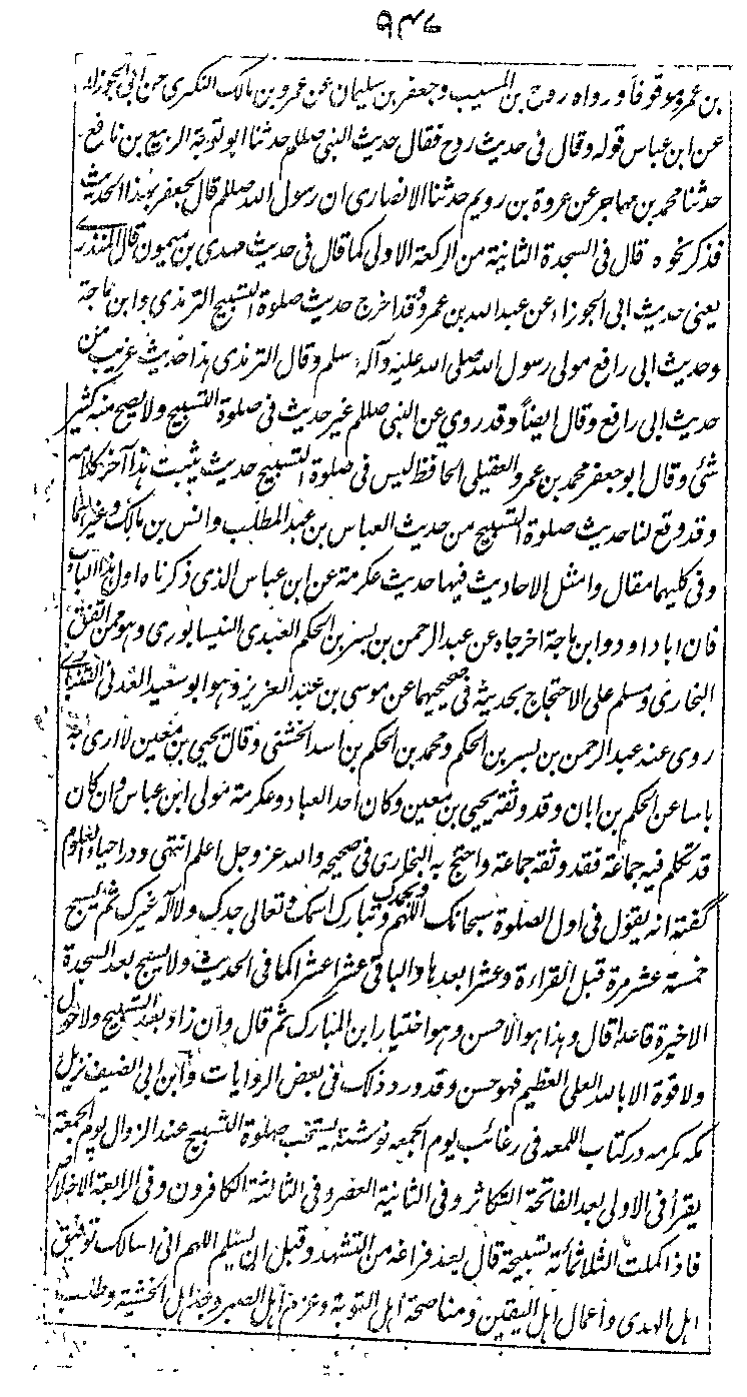 بن عمرو موقوفا ورواه روح بن المسيب وجعفر بن سليمان عن عمرو بن مالك النكرى عن ابى الجوزاء
عن ابن عباس قوله وقال فى حديث روح فقال حديث النبى صللم حدثنا ابو توبة الربيع بن نافع
حدثنا محمد بن مهاجر عن عروة بن رويم حدثنا الانصارى ان رسول الله صللم قال لجعفر بهذا الحديث
فذكر نحوه قال فى السجدة الثانية من الركعة الاولى كما قال فى حديث مهدى بن ميمون قال المنذرى
يعنى حديث ابى الجوزاء عن عبد الله بن عمرو وقد اخرج حديث صلوة التسبيح الترمذى وابن ماجة
وحديث ابى رافع مولى رسول الله صلى الله عليه وآله وسلم وقال الترمذى هذا حديث غريب من
حديث ابى رافع وقال ايضاً وقد روي عن النبى صللم غير حديث فى صلوة التسبيح ولا يصح منه كثير
شئ وقال ابو جعفر محمد بن عمرو العقيلى الحافظ ليس فى صلوة التسبيح حديث يثبت هذا آخر كلامه
وقد وقع لنا حديث صلوة التسبيح من حديث العباس بن عبد المطلب وانس بن مالك وغيرهما
وفى كليهما مقال وامثل الاحاديث فيها حديث عكرمة عن ابن عباس الذى ذكرناه اول هذا الباب
فان ابا داود وابن ماجة اخرجاه عن عبد الرحمن بن بسر بن الحكم العبدى النيسابورى وهو ممن اتفق
البخارى ومسلم على الاحتجاج بحديثه فى صحيحيهما عن موسى بن عبد العزيز وهو ابو سعيد العدنى القنبارى
روى عنه عبد الرحمن بن بسر بن الحكم ومحمد بن الحكم بن اسد الخشنى وقال يحيى بن معين لا ارى به
باسا عن الحكم بن ابان وقد وثقه يحيى بن معين وكان احد العباد وعكرمة مولى ابن عباس وان كان
قد تكلم فيه جماعة فقد وثقه جماعة واحتج به البخارى فى صحيحه والله عز وجل اعلم انتهى ودر احياء العلوم
گفته انه يقول فى اول الصلوة سبحانك اللهم وبحمدك وتبارك اسمك وتعالى جدك ولا اله غيرك ثم يسبح
خمسة عشر مرة قبل القراءة وعشرا بعدها والباقى عشرا عشرا كما فى الحديث ولا يسبح بعد السجدة
الاخيرة قاعدا قال وهذا هو الاحسن وهو اختيار ابن المبارك ثم قال وان زاد بعد التسبيح ولا حول
ولا قوة الا بالله العلى العظيم فهو حسن وقد ورد ذلك فى بعض الروايات وابن ابى الضيف نزيل
مكه مكرمه در كتاب اللمعه فى رغائب يوم الجمعه نوشته يستحب صلوة التسبيح عند الزوال يوم الجمعة
يقرأ فى الاولى بعد الفاتحة التكاثر وفى الثانية العصر وفى الثالثة الكافرون وفى الرابعة الاخلاص
فاذا كملت الثلاثمائة تسبيحة قال بعد فراغه من التشهد وقبل ان يسلم اللهم انى اسالك توفيق
اهل الهدى واعمال اهل اليقين ومناصحة اهل التوبة وعزم اهل الصبر وجد اهل الخشية وطلب